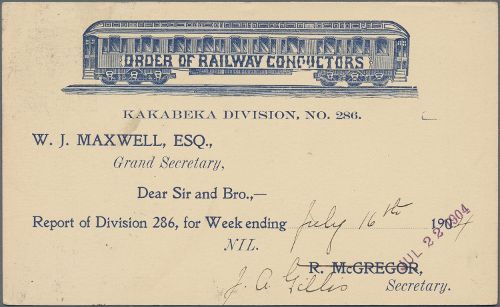 ORDER OF RAILWAY CONDUCTORS
KAKABEKA DIVISION, NO. 286.
W. J. MAXWELL, ESQ.,
Grand Secretary,
Dear Sir and Bro.,—
Report of Division 286, for Week ending July 16th 1904
JUL 22 1904
NIL.
R. McGREGOR,
J. A. Gillis Secretary.